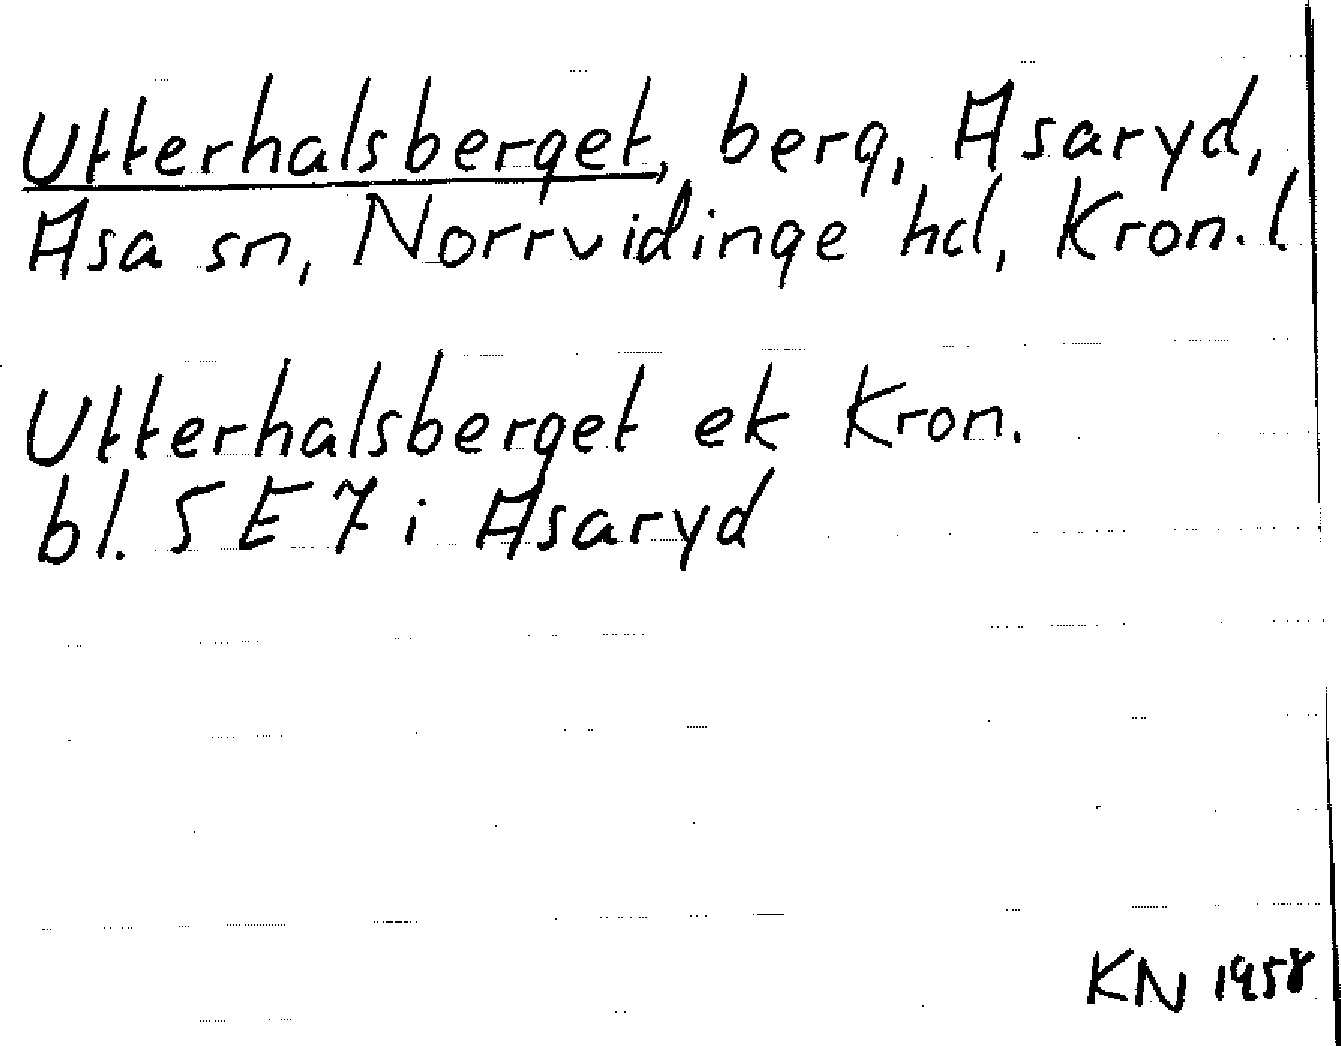 Utterhalsberget, berg, Asaryd,
Asa sn, Norrvidinge hd, Kron. l
Utterhalsberget ek Kron.
bl. 5 E 7 i Asaryd
KN 1958